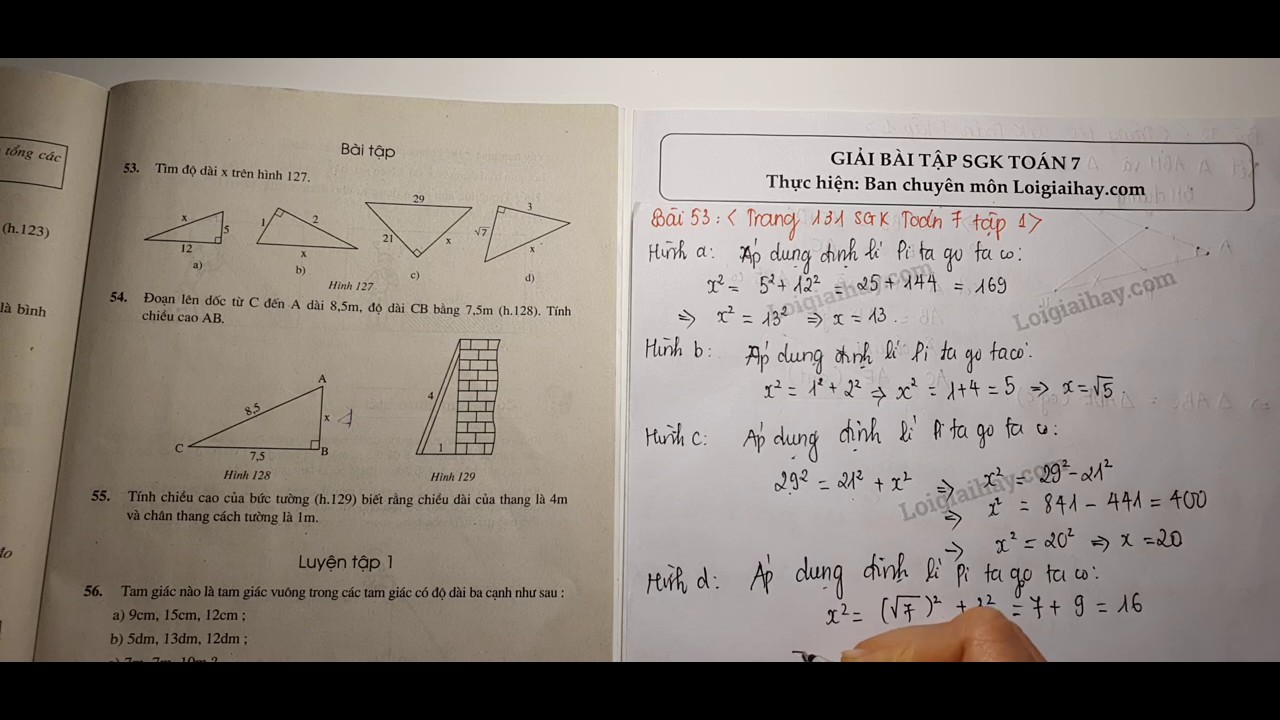 tổng các
(h.123)
là bình
Bài tập
53. Tìm độ dài x trên hình 127.
x
5
12
a)
1
2
x
b)
29
21
x
c)
3
√7
x
d)
Hình 127
54. Đoạn lên dốc từ C đến A dài 8,5m, độ dài CB bằng 7,5m (h.128). Tính
chiều cao AB.
A
8,5
x
C
7,5
B
Hình 128
4
1
Hình 129
55. Tính chiều cao của bức tường (h.129) biết rằng chiều dài của thang là 4m
và chân thang cách tường là 1m.
Luyện tập 1
56. Tam giác nào là tam giác vuông trong các tam giác có độ dài ba cạnh như sau :
a) 9cm, 15cm, 12cm ;
b) 5dm, 13dm, 12dm ;
GIẢI BÀI TẬP SGK TOÁN 7
Thực hiện: Ban chuyên môn Loigiaihay.com
Bài 53: < Trang 131 SGK Toán 7 tập 1>
Hình a: Áp dụng định lí Pi ta go ta có:
x² = 5² + 12² = 25 + 144 = 169
⇒ x² = 13² ⇒ x = 13.
Hình b: Áp dụng định lí Pi ta go ta có:
x² = 1² + 2² ⇒ x² = 1+4 = 5 ⇒ x = √5.
Hình c: Áp dụng định lí Pi ta go ta có:
29² = 21² + x² ⇒ x² = 29² - 21²
⇒ x² = 841 - 441 = 400
⇒ x² = 20² ⇒ x = 20
Hình d: Áp dụng định lí Pi ta go ta có:
x² = (√7)² + 3² = 7 + 9 = 16
Loigiaihay.com
Loigiaihay.com
Loigiaihay.com